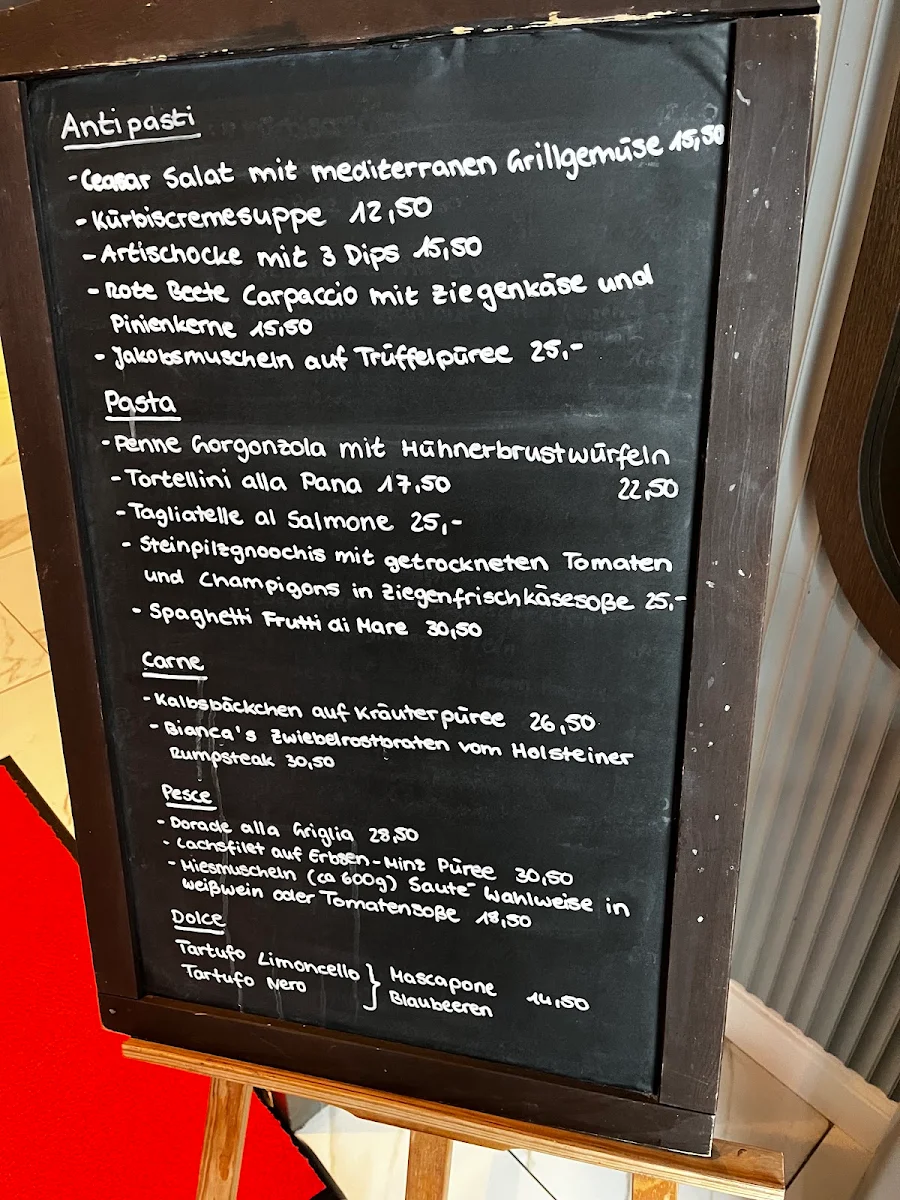 Antipasti
- Ceasar Salat mit mediterranen Grillgemüse 15,50
- Kürbiscremesuppe 12,50
- Artischocke mit 3 Dips 15,50
- Rote Beete Carpaccio mit Ziegenkäse und
Pinienkerne 15,50
- Jakobsmuscheln auf Trüffelpüree 25,-
Pasta
- Penne Gorgonzola mit Hühnerbrustwürfeln
22,50
- Tortellini alla Pana 17,50
- Tagliatelle al Salmone 25,-
- Steinpilzgnoochis mit getrockneten Tomaten
und Champigons in Ziegenfrischkäsesoße 25,-
- Spaghetti Frutti di Mare 30,50
Carne
- Kalbsbäckchen auf Kräuterpüree 26,50
- Bianca's Zwiebelrostbraten vom Holsteiner
Rumpsteak 30,50
Pesce
- Dorade alla Griglia 28,50
- Lachsfilet auf Erbsen-Minz Püree 30,50
- Miesmuscheln (ca 600g) Sauté Wahlweise in
weißwein oder Tomatensoße 18,50
Dolce
Tartufo Limoncello } Mascapone
Tartufo Nero Blaubeeren 14,50